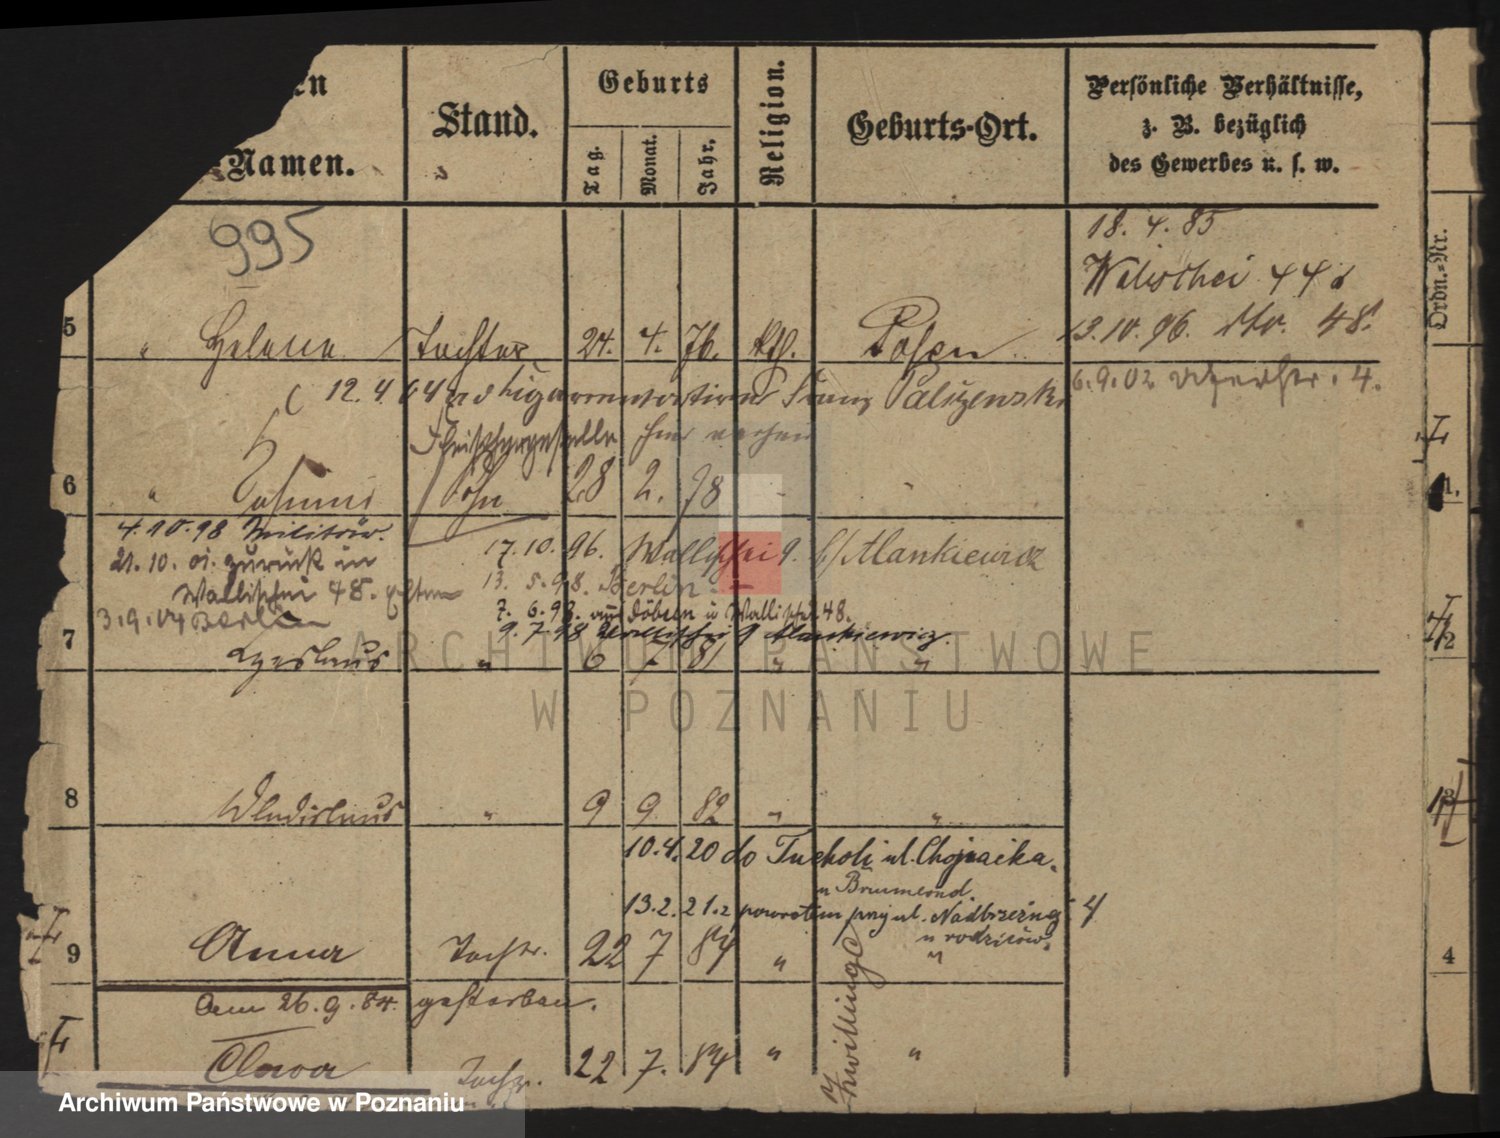 en
Namen.
Stand.
Geburts
Tag.
Monat.
Jahr.
Religion.
Geburts-Ort.
Persönliche Verhältnisse,
z. B. bezüglich
des Gewerbes u. s. w.
Ordn.-Nr.
995
18. 4. 85
Wallischei 44
13.10.96. dto. 48.
5 " Helena Tochter 24. 4. 76. kth. Posen
6.9.02 4.
12.4.04 Franz
Fleischergeselle
6 " Sohn 28 2. 78 " "
4.10.98 Militär.
21.10.01. zurück in
Wallischei 48. Eltern
3.9.04 Berlin
17.10.96. Wallischei 9. b/ Mankiewicz
13. 5.98. Berlin
7. 6.98. aus Döbeln in Wallischei 48.
9.7.98 Wallischei 9 Mankiewicz.
7 Czeslaus " 6 7 81 " "
8 Wladislaus " 9 9 82 " "
10.4.20 do Tucholi ul. Chojnicka
u Brummond.
13.2.21.z powrotem przy ul. Nadbrzeżnej 4
u rodziców.
9 Anna Tochtr. 22 7 84 " "
Am 26.9.84. gestorben.
Clara Tocht. 22 7. 84 " "
Zwillinge
1.
2
3
4
ARCHIWUM PAŃSTWOWE
W POZNANIU
Archiwum Państwowe w Poznaniu